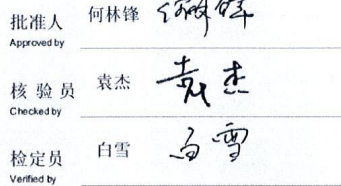 批准人 何林锋 何林锋
Approved by
核验员 袁杰 袁杰
Checked by
检定员 白雪 白雪
Verified by